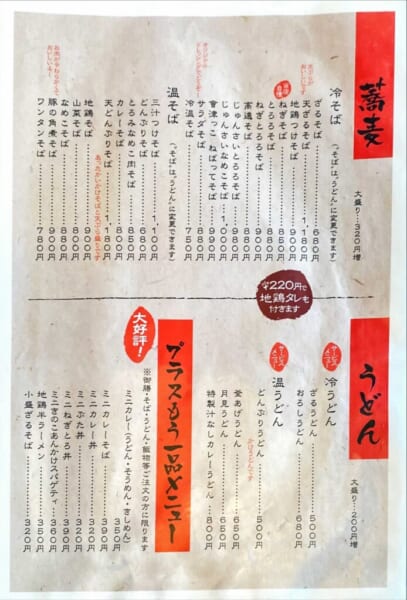 蕎麦
大盛り…320円増
冷そば
(“そば”は“うどん”に変更できます)
ざるそば……680円
天ざるそば…1,180円
地鶏つけそば
ねぎそば
とろろそば
ねぎとろろそば
高遠そば
じゅんさいとろろそば
じゅんさいなめこそば
會津っこ ねばってそば
サラダそば
冷温そば……750円
温そば
(“そば”は“うどん”に変更できます)
三汁つけそば…1,100円
どんぶりそば
とろみなめこ肉そば
カレーそば……800円
天どんぶりそば…1,180円
あったかいかけそばの天ぷら盛りです
地鶏そば
山菜そば
なめこそば……880円
豚の角煮そば……900円
ワンタンそば……780円
プラス220円で
地鶏タレも
付きます
うどん
大盛り…200円増
サービスメニュー
冷うどん
ざるうどん……500円
おろしうどん……680円
サービスメニュー
温うどん
どんぶりうどん……500円
かけうどんです
釜あげうどん……650円
月見うどん……650円
特製汁なしカレーうどん……800円
大好評!
プラスもう一品メニュー
※御膳・そば・うどん・飯物等ご注文の方に限ります
ミニカレー(うどん・そうめん・きしめん)
……350円
ミニカレーそば……390円
ミニカレー丼……320円
ミニぶた丼……320円
ミニねぎとろ丼……390円
ミニきのこあんかけスパゲティ……360円
地鶏半ラーメン……350円
小盛ざるそば……320円